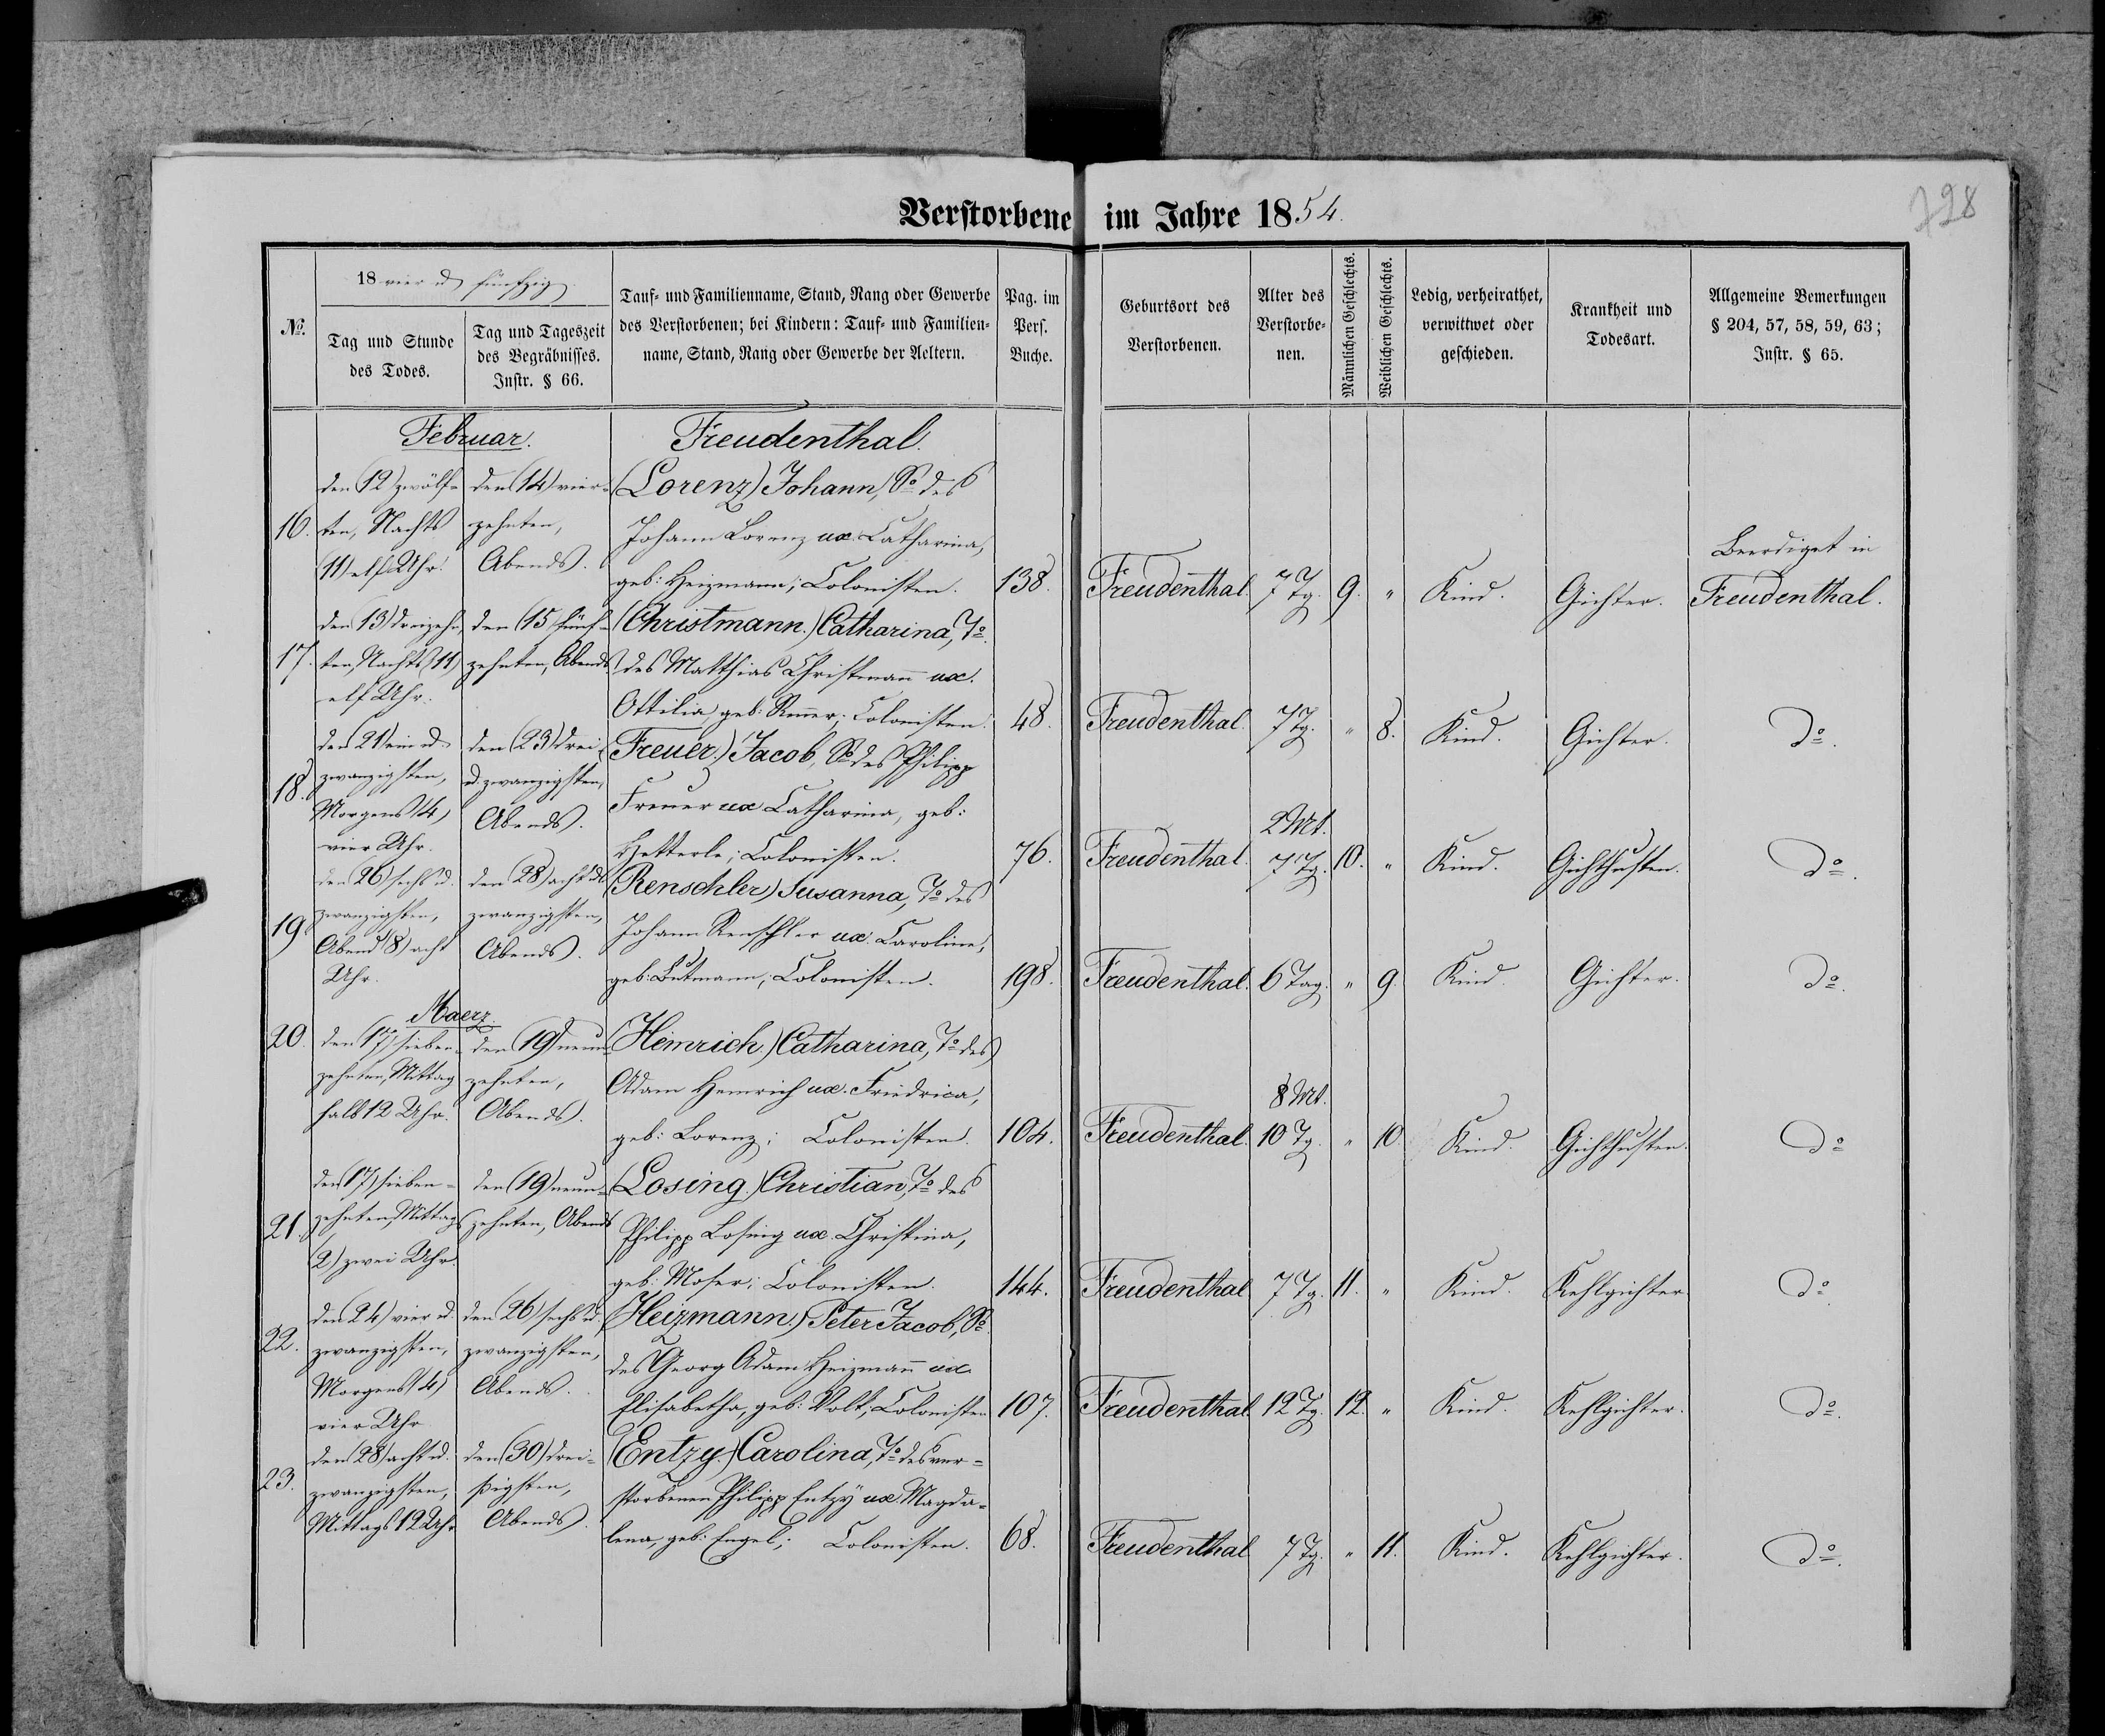 Verstorbene im Jahre 1854.
728
№.
18 vier u fünfzig.
Tag und Stunde des Todes.
Tag und Tageszeit des Begräbnisses. Instr. § 66.
Tauf- und Familienname, Stand, Rang oder Gewerbe des Verstorbenen; bei Kindern: Tauf- und Familienname, Stand, Rang oder Gewerbe der Aeltern.
Pag. im Pers. Buche.
Geburtsort des Verstorbenen.
Alter des Verstorbenen.
Männlichen Geschlechts.
Weiblichen Geschlechts.
Ledig, verheirathet, verwittwet oder geschieden.
Krankheit und Todesart.
Allgemeine Bemerkungen § 204, 57, 58, 59, 63; Instr. § 65.
Februar.
Freudenthal.
16.
den (12) zwölf-
ten, Nachts
(11) elf Uhr.
den (14) vier-
zehnten,
Abends.
(Lorenz) Johann, So des
Johann Lorenz ux. Catharina,
geb: Heizmann; Colonisten.
138.
Freudenthal.
7 Tg.
9.
"
Kind.
Gichter.
Beerdiget in
Freudenthal.
17.
den (13) dreizehn-
ten, Nachts (11)
elf Uhr.
den (15 fünf-
zehnten, Abends
(Christmann.) Catharina, To.
des Matthias Christmann ux.
Ottilia, geb: Colonisten.
48.
Freudenthal.
7 Tg.
"
8.
Kind.
Gichter.
do.
18.
den 21) ein u
zwanzigsten,
Morgens (4)
vier Uhr.
den (23) drei
u. zwanzigsten,
Abends.
(Freuer.) Jacob, So des Philipp
Freuer ux Catharina, geb:
Hetterle; Colonisten.
76.
Freudenthal.
2 Mt.
7 Tg.
10.
"
Kind.
Gichthusten.
do.
19.
den 26) sechs u.
zwanzigsten,
Abend (8) acht
Uhr.
den (28) acht u
zwanzigsten,
Abends.
(Renschler) Susanna, To des
Johann Renschler ux. Caroline,
geb: Gutmann; Colonisten.
198.
Freudenthal.
6 Tag.
"
9.
Kind.
Gichter.
do.
Maerz.
20.
den 17) sieben-
zehnten, Mittag
halb 12 Uhr.
den (19) neun-
zehnten,
Abends.
(Hemrich.) Catharina, To des
Adam Hemrich ux. Friedrica,
geb: Lorenz; Colonisten.
104.
Freudenthal.
8 Mt.
10 Tg.
"
10
Kind.
Gichthusten.
do
21.
den 17) sieben-
zehnten, Mittags
(2) zwei Uhr.
den (19) neun-
zehnten, Abends
(Losing.) Christian, To des
Philipp Losing ux. Christina,
geb: Moser; Colonisten.
144.
Freudenthal
7 Tg.
11.
"
Kind.
Kehlgichter
do.
22.
den 24) vier u.
zwanzigsten,
Morgens (4)
vier Uhr
den 26) sechs u.
zwanzigsten,
Abends.
(Heizmann.) Peter Jacob, So.
des Georg Adam Heizmann ux.
Elisabetha, geb: Volk; Colonisten
107.
Freudenthal.
12 Tg.
12.
"
Kind.
Kehlgichter.
do.
23.
den 28) acht u.
zwanzigsten,
Mittags 12 Uhr
den (30) drei-
ßigsten,
Abends.
(Entzy.) Carolina, To des ver-
storbenen Philipp Entzy ux. Magda-
lena, geb: Engel; Colonisten.
68.
Freudenthal
7 Tg.
"
11.
Kind.
Kehlgichter.
do.